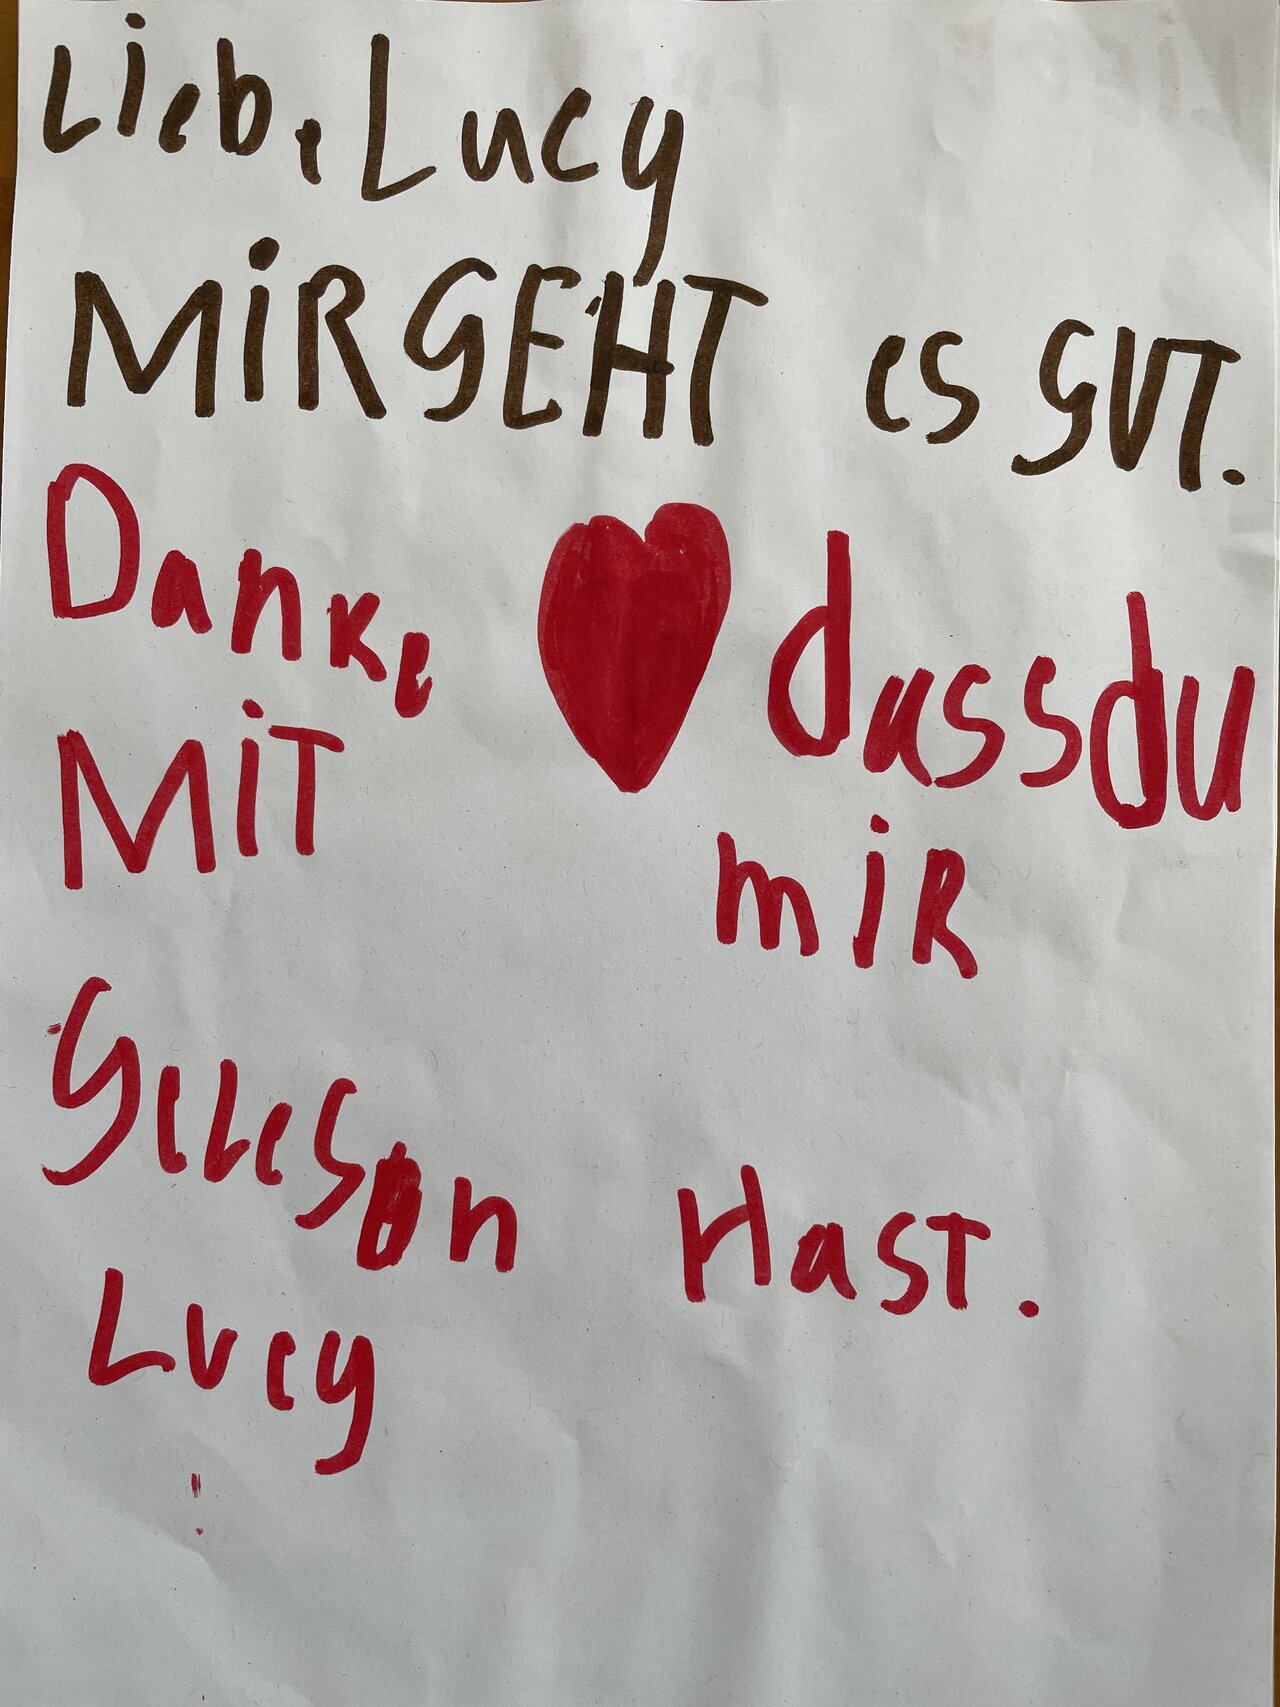 Liebe Lucy
MiR GEHT es GUT.
Danke dass du
MiT miR
Gelesen Hast.
Lucy